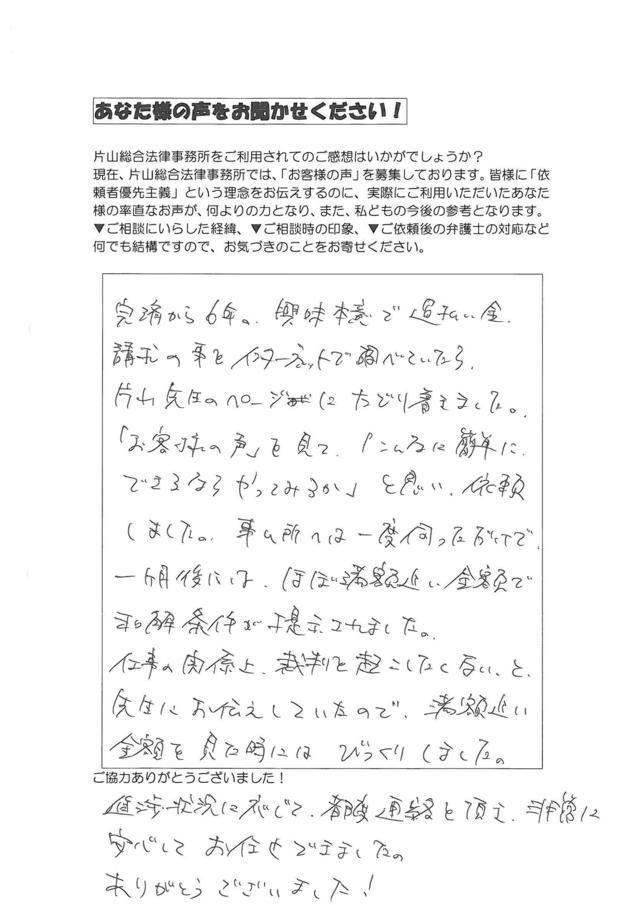 あなた様の声をお聞かせください！
片山総合法律事務所をご利用されてのご感想はいかがでしょうか？
現在、片山総合法律事務所では、「お客様の声」を募集しております。皆様に「依
頼者優先主義」という理念をお伝えするのに、実際にご利用いただいたあなた
様の率直なお声が、何よりの力となり、また、私どもの今後の参考となります。
▼ご相談にいらした経緯、▼ご相談時の印象、▼ご依頼後の弁護士の対応など
何でも結構ですので、お気づきのことをお寄せください。
完済から6年。興味本意で過払い金
請求の事をインターネットで調べていたら、
片山先生のページにたどり着きました。
「お客様の声」を見て、「こんなに簡単に
できるならやってみるか」と思い、依頼
しました。事ム所へは一度伺っただけで、
一ヶ月後には、ほぼ満額近い金額で
和解条件が提示されました。
仕事の関係上、裁判を起こしたくない、と
先生にお伝えしていたので、満額近い
金額を見た時にはびっくりしました。
ご協力ありがとうございました！
進渉状況に応じて、都度連絡を頂き、非常に
安心してお任せできました。
ありがとうございました！